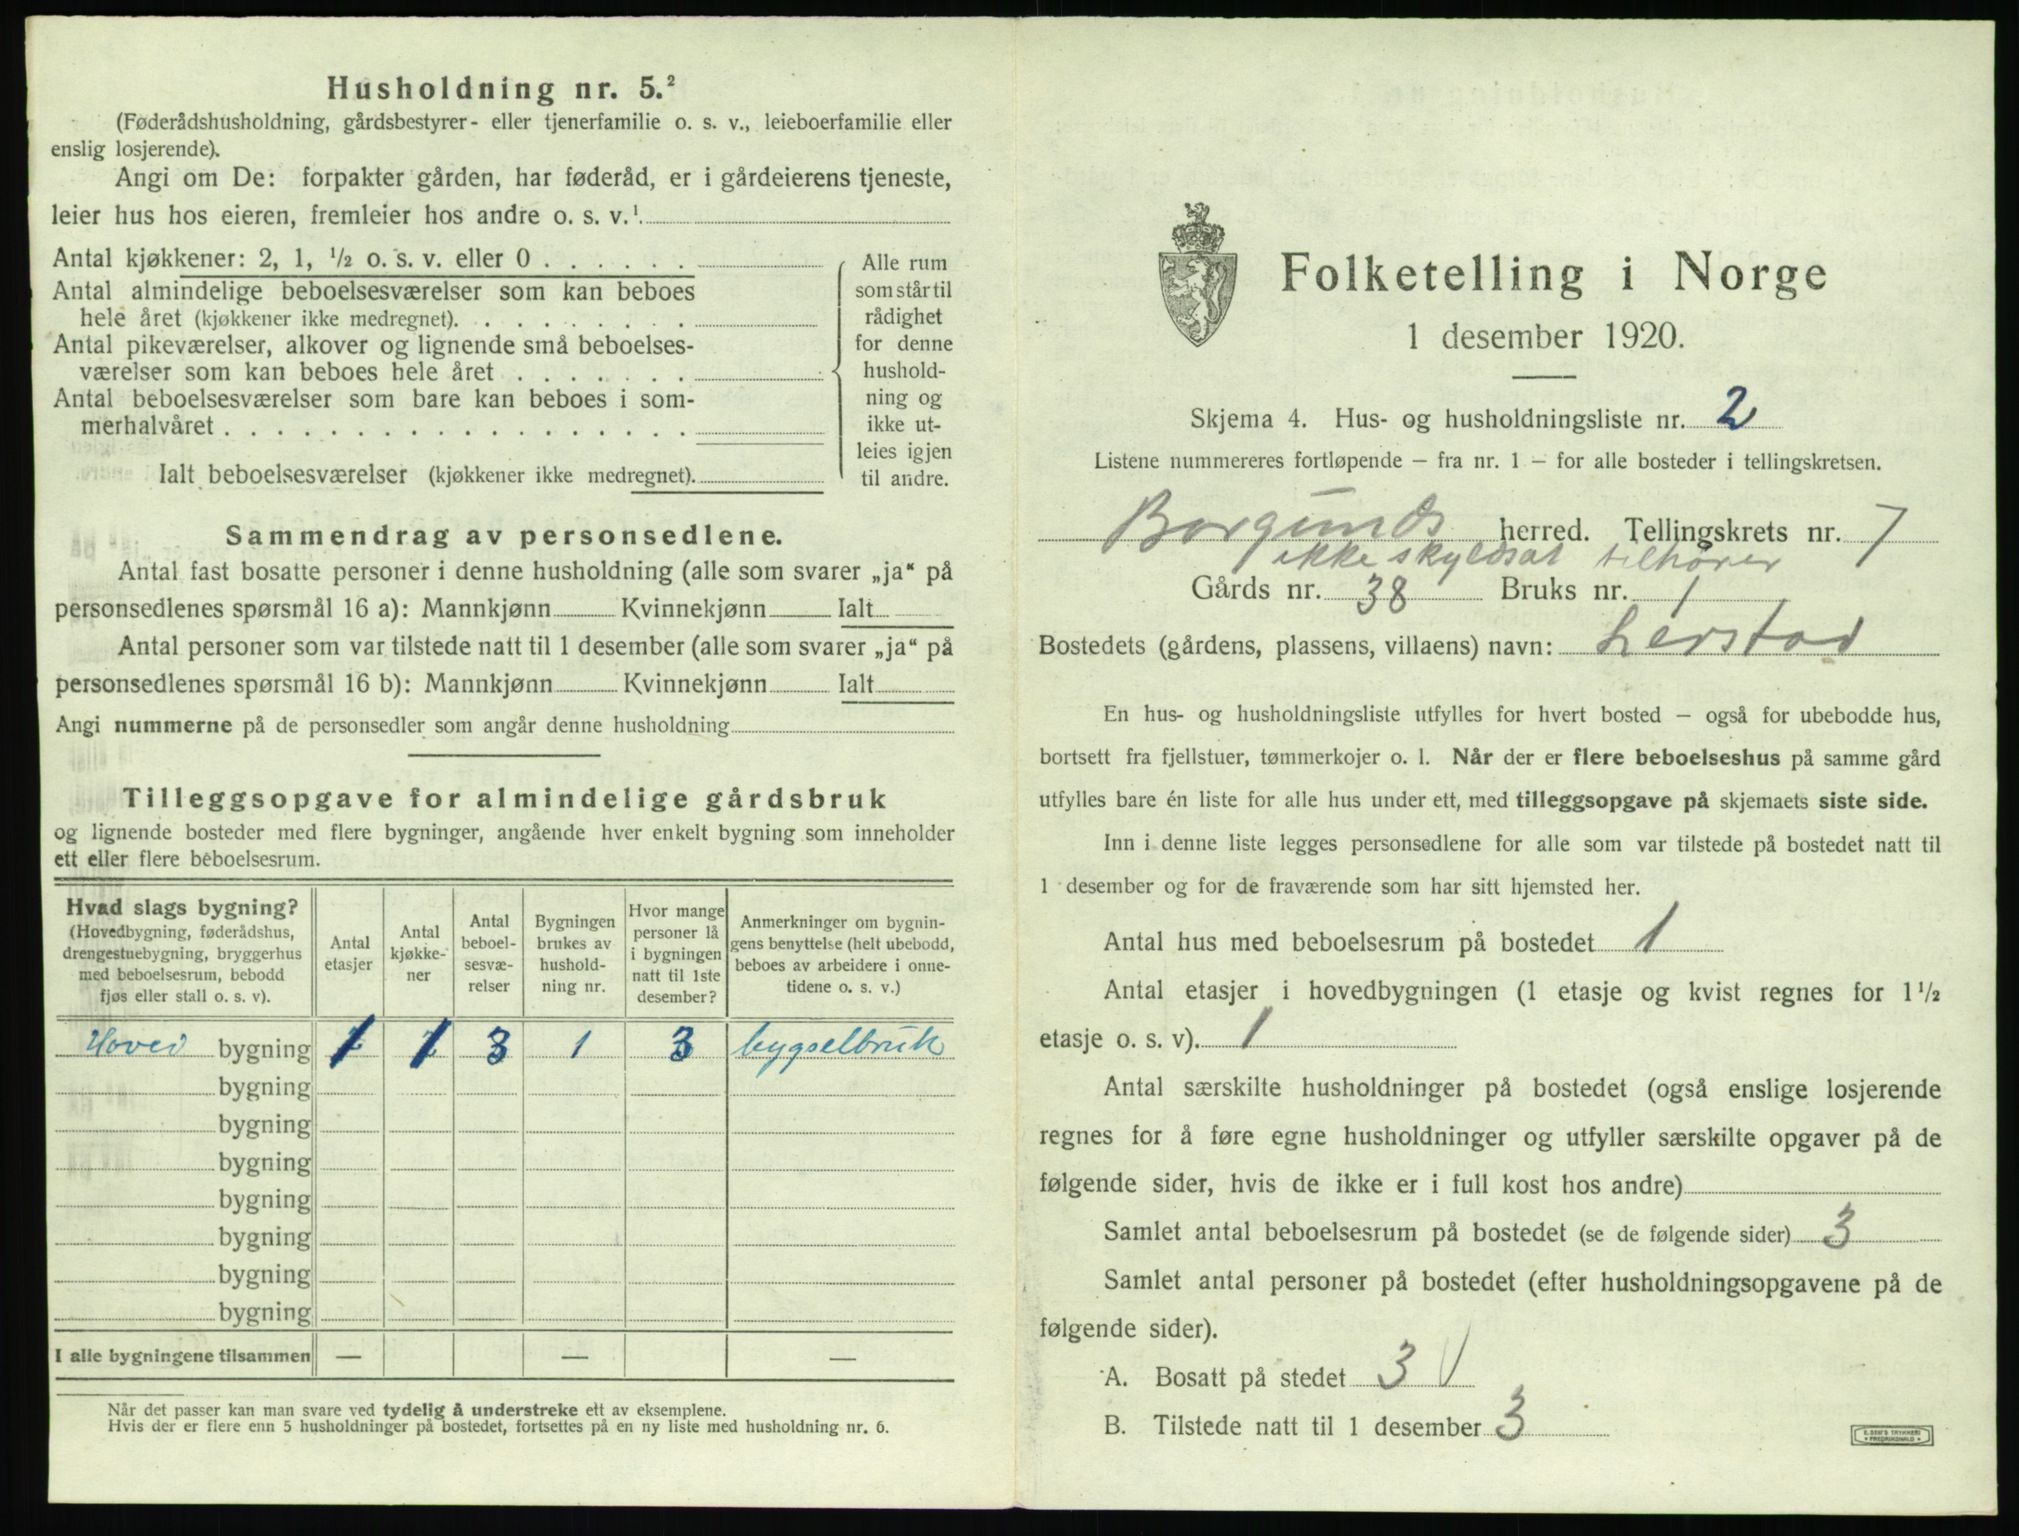 Husholdning nr. 5.²
(Føderådshusholdning, gårdsbestyrer- eller tjenerfamilie o. s. v., leieboerfamilie eller
enslig losjerende).
Angi om De: forpakter gården, har føderåd, er i gårdeierens tjeneste,
leier hus hos eieren, fremleier hos andre o. s. v.¹
Antal kjøkkener: 2, 1, ½ o. s. v. eller 0 . . . . . .
Antal almindelige beboelsesværelser som kan beboes
hele året (kjøkkener ikke medregnet). . . . . . . . .
Antal pikeværelser, alkover og lignende små beboelses-
værelser som kan beboes hele året . . . . . . .
Antal beboelsesværelser som bare kan beboes i som-
merhalvåret . . . . . . . . . . . . . . . . . .
Ialt beboelsesværelser (kjøkkener ikke medregnet).
Alle rum
som står til
rådighet
for denne
hushold-
ning og
ikke ut-
leies igjen
til andre.
Sammendrag av personsedlene.
Antal fast bosatte personer i denne husholdning (alle som svarer „ja“ på
personsedlenes spørsmål 16 a): Mannkjønn Kvinnekjønn Ialt
Antal personer som var tilstede natt til 1 desember (alle som svarer „ja“ på
personsedlenes spørsmål 16 b): Mannkjønn Kvinnekjønn Ialt
Angi nummerne på de personsedler som angår denne husholdning
Tilleggsopgave for almindelige gårdsbruk
og lignende bosteder med flere bygninger, angående hver enkelt bygning som inneholder
ett eller flere beboelsesrum.
Hvad slags bygning?
(Hovedbygning, føderådshus,
drengestuebygning, bryggerhus
med beboelsesrum, bebodd
fjøs eller stall o. s. v).
Antal
etasjer
Antal
kjøkke-
ner
Antal
beboel-
sesvæ-
relser
Bygningen
brukes av
hushold-
ning nr.
Hvor mange
personer lå
i bygningen
natt til 1ste
desember?
Anmerkninger om bygnin-
gens benyttelse (helt ubebodd,
beboes av arbeidere i onne-
tidene o. s. v.)
Hoved bygning 1 1 3 1 3 bygselbruk
bygning
bygning
bygning
bygning
bygning
bygning
bygning
I alle bygningene tilsammen — — —
Når det passer kan man svare ved tydelig å understreke ett av eksemplene.
Hvis der er flere enn 5 husholdninger på bostedet, fortsettes på en ny liste med husholdning nr. 6.
Folketelling i Norge
1 desember 1920.
Skjema 4. Hus- og husholdningsliste nr. 2
Listene nummereres fortløpende – fra nr. 1 – for alle bosteder i tellingskretsen.
Borgunds herred. Tellingskrets nr. 7
ikke skyldsat tilhører
Gårds nr. 38 Bruks nr. 1
Bostedets (gårdens, plassens, villaens) navn: Lerstad
En hus- og husholdningsliste utfylles for hvert bosted – også for ubebodde hus,
bortsett fra fjellstuer, tømmerkojer o. l. Når der er flere beboelseshus på samme gård
utfylles bare én liste for alle hus under ett, med tilleggsopgave på skjemaets siste side.
Inn i denne liste legges personsedlene for alle som var tilstede på bostedet natt til
1 desember og for de fraværende som har sitt hjemsted her.
Antal hus med beboelsesrum på bostedet 1
Antal etasjer i hovedbygningen (1 etasje og kvist regnes for 1½
etasje o. s. v). 1
Antal særskilte husholdninger på bostedet (også enslige losjerende
regnes for å føre egne husholdninger og utfyller særskilte opgaver på de
følgende sider, hvis de ikke er i full kost hos andre)
Samlet antal beboelsesrum på bostedet (se de følgende sider) 3
Samlet antal personer på bostedet (efter husholdningsopgavene på de
følgende sider).
A. Bosatt på stedet 3 V
B. Tilstede natt til 1 desember 3